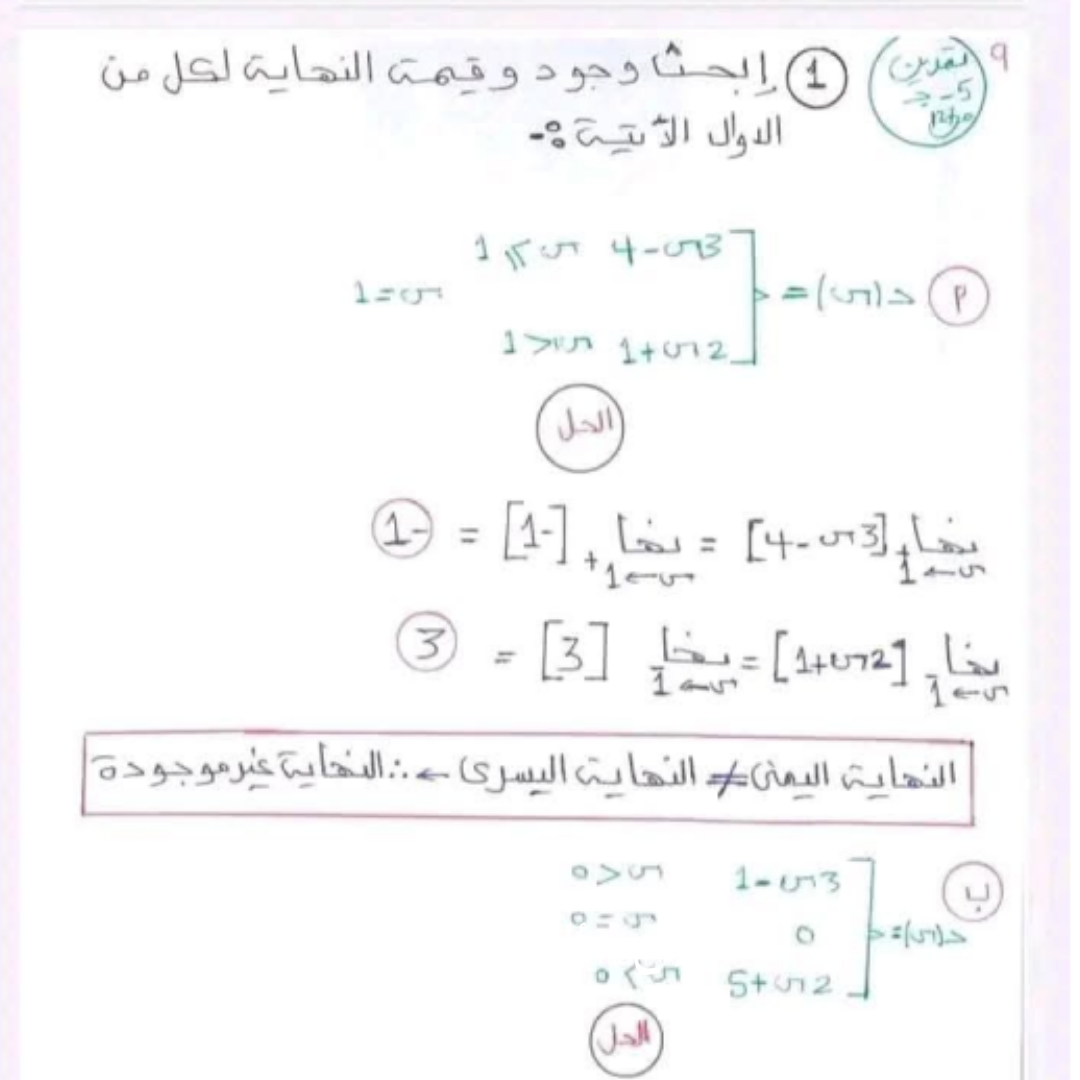 ٩
تمرين
5-ج
ص١٢
① إبحث وجود و قيمة النهاية لكل من
الدوال الآتية :-
أ د(س) =
3س-4 س ≥ 1
س=1
2س+1 س<1
الحل
نها س→1+ [3س-4] = نها س→1+ [-1] = -1
نها س→1- [2س+1] = نها س→1- [3] = 3
النهاية اليمنى ≠ النهاية اليسرى ← ∴ النهاية غير موجودة
ب د(س)=
3س-1 س<0
0 س=0
2س+5 س>0
الحل